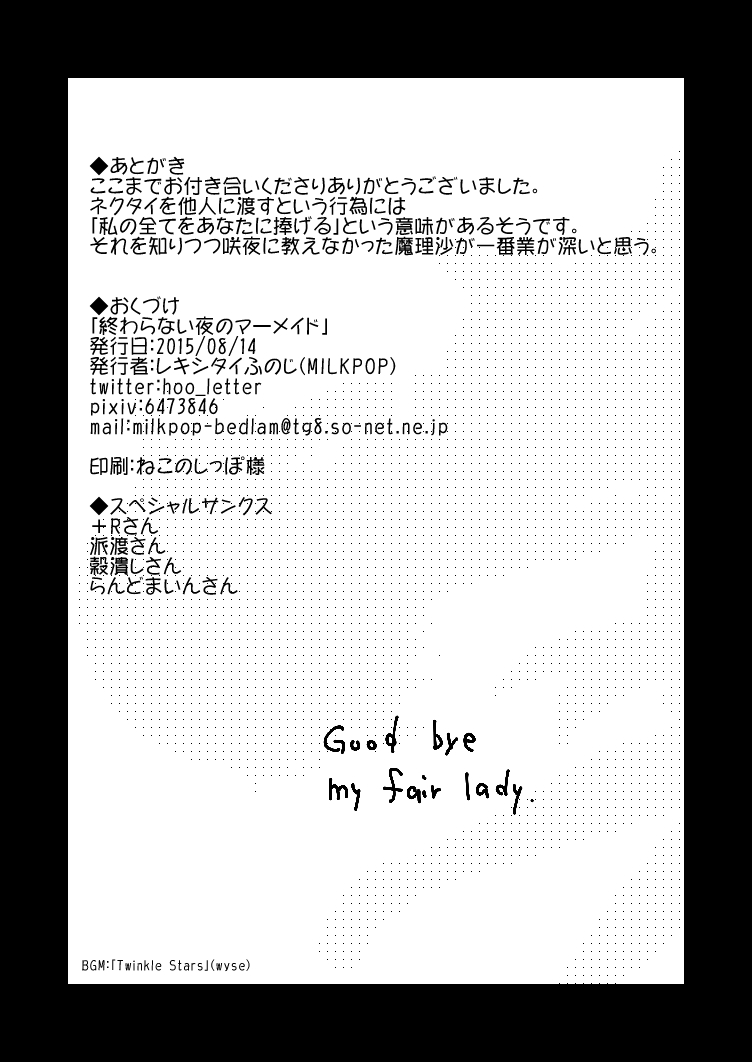 ◆あとがき
ここまでお付き合いくださりありがとうございました。
ネクタイを他人に渡すという行為には
「私の全てをあなたに捧げる」という意味があるそうです。
それを知りつつ咲夜に教えなかった魔理沙が一番業が深いと思う。
◆おくづけ
「終わらない夜のマーメイド」
発行日:2015/08/14
発行者:レキシタイふのじ(MILKPOP)
twitter:hoo_letter
pixiv:6473846
mail:milkpop-bedlam@tg8.so-net.ne.jp
印刷:ねこのしっぽ様
◆スペシャルサンクス
＋Rさん
派渡さん
穀潰しさん
らんどまいんさん
Good bye
my fair lady.
BGM:「Twinkle Stars」(wyse)